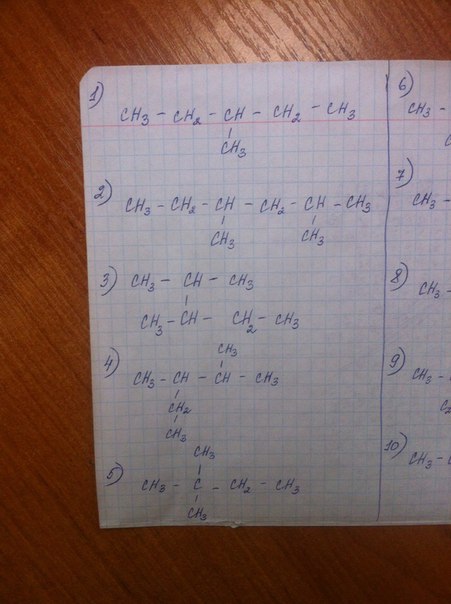 1)
CH3 - CH2 - CH - CH2 - CH3
CH3
2)
CH3 - CH2 - CH - CH2 - CH - CH3
CH3 CH3
3)
CH3 - CH - CH3
CH3 - CH - CH2 - CH3
4)
CH3
CH3 - CH - CH - CH3
CH2
CH3
5)
CH3
CH3 - C - CH2 - CH3
CH3
6)
CH3 -
7)
CH3 -
8)
CH3 -
9)
CH3 -
10)
CH3 -